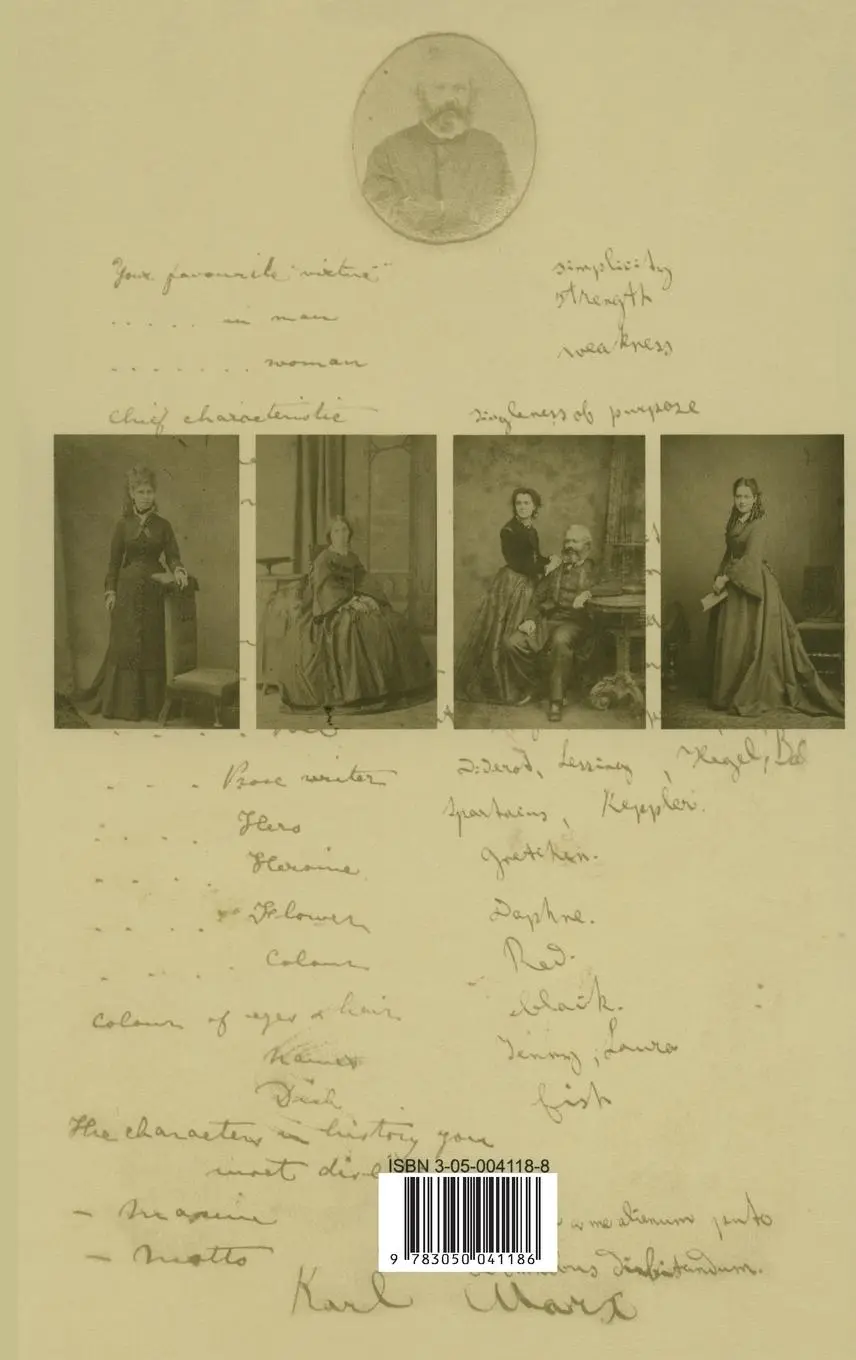 Your favourite "virtue" simplicity
..... in man strength
....... woman weakness
Chief characteristic singleness of purpose
... Prose writer Diderot, Lessing, Hegel, Bal
.... Hero Spartacus, Keppler.
.... Heroine Gretchen.
.... Flower Daphne.
.... Colour Red.
Colour of eyes & hair black.
Names Jenny, Laura
Dish fish
The characters in history you
most disl
ISBN 3-05-004118-8
— Maxime a me alienum puto
— Motto omnibus dubitandum.
9 783050 041186
Karl Marx